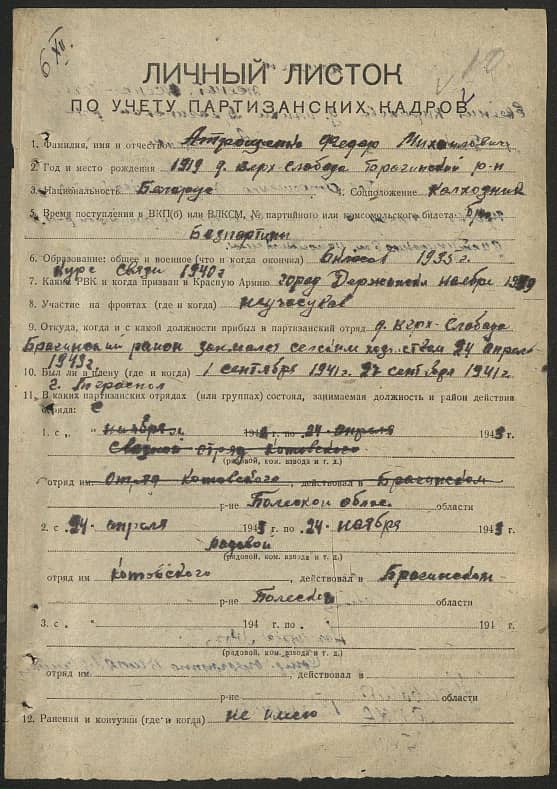 6 XII.
ЛИЧНЫЙ ЛИСТОК
ПО УЧЕТУ ПАРТИЗАНСКИХ КАДРОВ
1. Фамилия, имя и отчество Федор Михайлович
2. Год и место рождения 1919 д. Верх-Слобода р-н
3. Национальность Беларус 4. Соцположение Колхозник
5. Время поступления в ВКП(б) или ВЛКСМ, № партийного или комсомольского билета
Безпартийны
6. Образование: общее и военное (что и когда окончил) 6 класов 1935 г.
Курс Связи 1940 г
7. Каким РВК и когда призван в Красную Армию город ноября 1939
8. Участие на фронтах (где и когда) неучасувов
9. Откуда, когда и с какой должности прибыл в партизанский отряд д. -Слабода
Брагинский район сельским 24 апреля
1943 г.
10. Был ли в плену (где и когда) 1 сентября 1941 г. 27 сентября 1941 г.
г. Тираспол
11. В каких партизанских отрядах (или группах) состоял, занимаемая должность и район действия
отряда: с
1. с „ " ноября 194 г. по 24 апреля 1943 г.
Связной отряд Котовского
(рядовой, ком. взвода и т. д.)
отряд им. Отряд Котовского, действовал в Брагинском
р-не Полеской облас. области
2. с 24 апреля 1943 г. по 24 ноября 1943 г.
радовой
(рядовой, ком. взвода и т. д.)
отряд им Котовского, действовал в Брагинском
р-не Полеской области
3. с „ " 194 г. по „ " 194 г.
(рядовой, ком. взвода и т. д.)
отряд им. , действовал в
р-не области
12. Ранения и контузии (где и когда) не имею